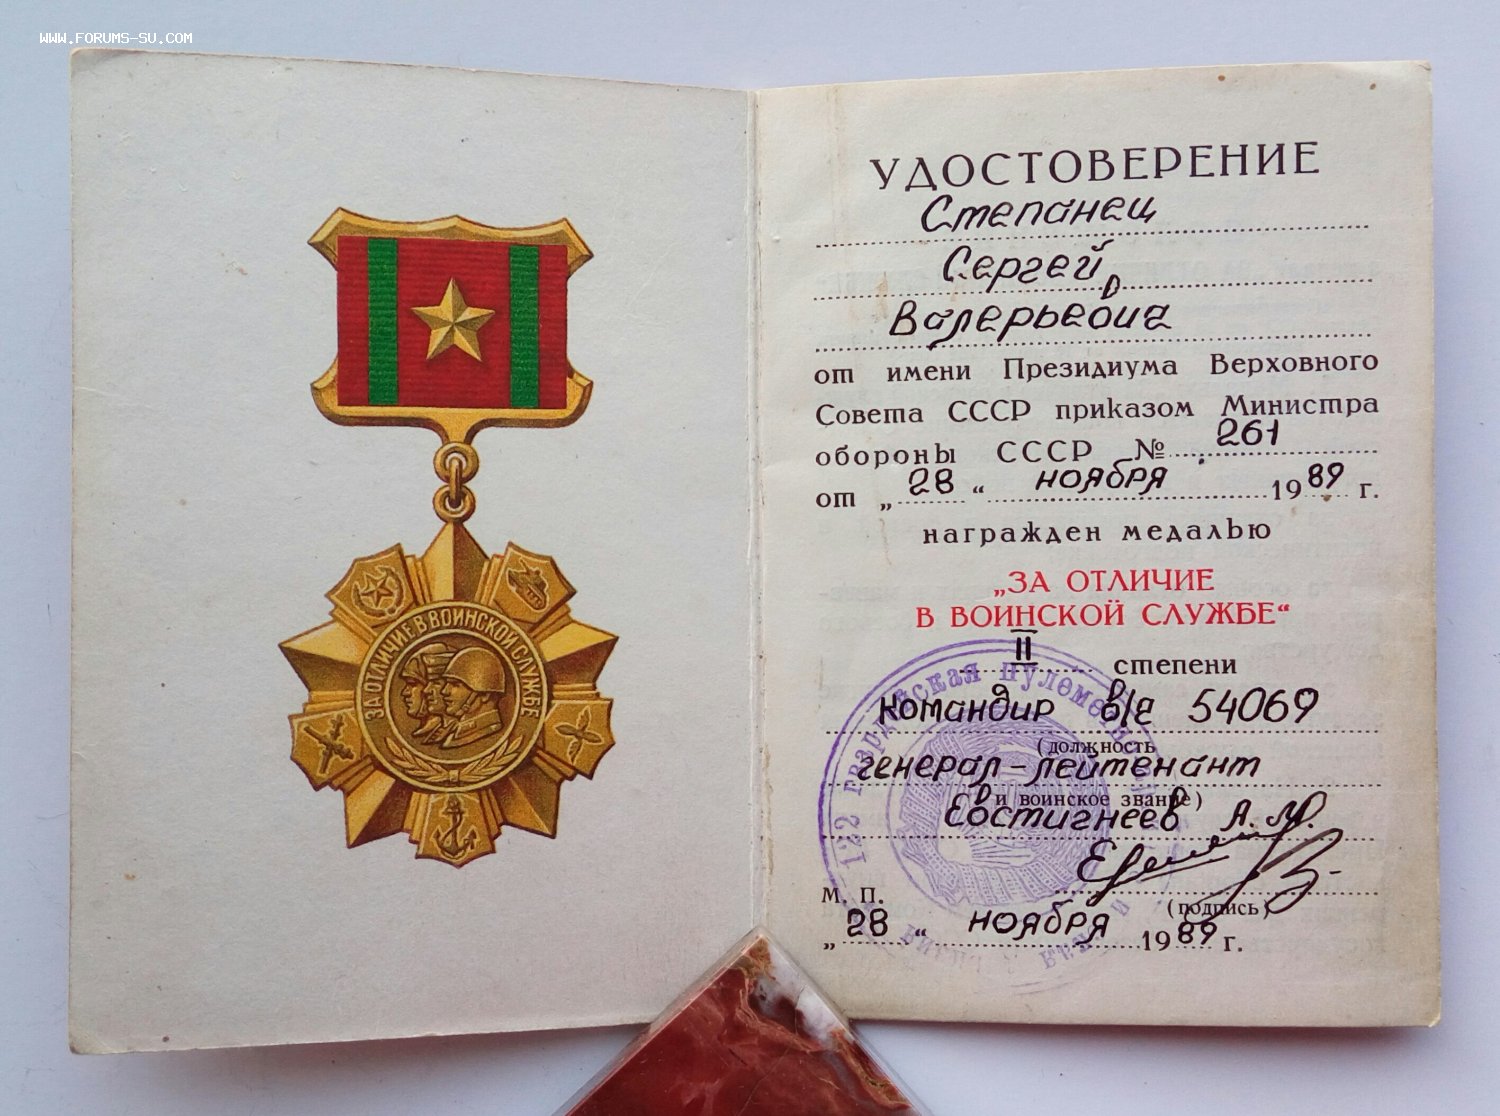 WWW.FORUMS-SU.COM
ЗА ОТЛИЧИЕ В ВОИНСКОЙ СЛУЖБЕ
УДОСТОВЕРЕНИЕ
Степанец
Сергей
Валерьевич
от имени Президиума Верховного
Совета СССР приказом Министра
обороны СССР № 261
от „ 28 “ ноября 1989 г.
награжден медалью
„ЗА ОТЛИЧИЕ
В ВОИНСКОЙ СЛУЖБЕ“
II степени
командир в/г 54069
(должность
генерал-лейтенант
и воинское звание)
Евстигнеев А. М.
М. П.
(подпись)
„ 28 “ ноября 1989 г.
122 гвардейская пулеметн